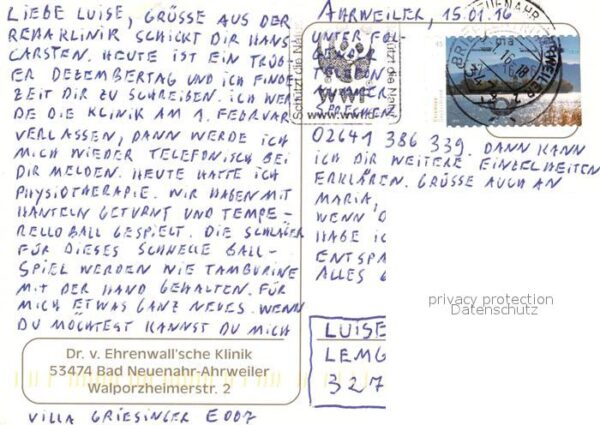 LIEBE LUISE, GRÜSSE AUS DER
REHAKLINIK SCHICKT DIR HANS
CARSTEN. HEUTE IST EIN TRÜB
ER DEZEMBERTAG UND ICH FINDE
ZEIT DIR ZU SCHREIBEN. ICH WER
DE DIE KLINIK AM 1. FEBRUAR
VERLASSEN, DANN WERDE ICH
MICH WIEDER TELEFONISCH BEI
DIR MELDEN. HEUTE HATTE ICH
PHYSIOTHERAPIE. WIR HABEN MIT
HANTELN GETURNT UND TEMPE-
RELLOBALL GESPIELT. DIE SCHLÄGER
FÜR DIESES SCHNELLE BALL-
SPIEL WERDEN WIE TAMBURINE
MIT DER HAND GEHALTEN. FÜR
MICH ETWAS GANZ NEUES. WENN
DU MÖCHTEST KANNST DU MICH
Dr. v. Ehrenwall'sche Klinik
53474 Bad Neuenahr-Ahrweiler
Walporzheimerstr. 2
VILLA GRIESINGER E007
AHRWEILER, 15.01.16
UNTER FOL-
GENDER
TELEFON
NUMMER
SPRECHEN:
02641 386 339. DANN KANN
ICH DIR WEITERE EINZELHEITEN
ERKLÄREN. GRÜSSE AUCH AN
MARIA,
WENN D
HABE IC
ENTSPA
ALLES G
Schützt die Natur
WWF
www.
privacy protection
Datenschutz
LUISE
LEMG
327